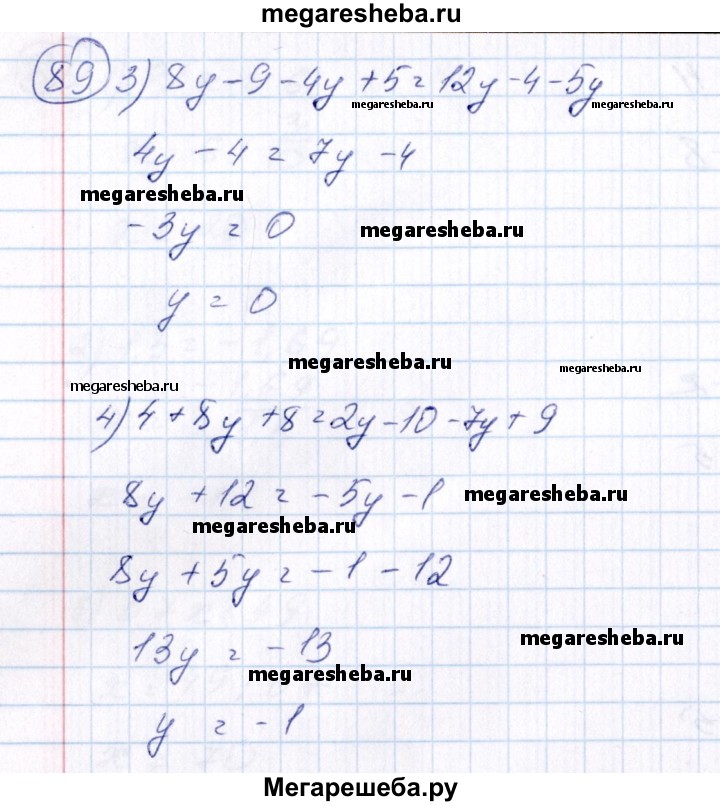 megaresheba.ru
89 3) 8y - 9 - 4y + 5 = 12y - 4 - 5y
megaresheba.ru megaresheba.ru
4y - 4 = 7y - 4
megaresheba.ru
-3y = 0 megaresheba.ru
y = 0
megaresheba.ru megaresheba.ru
megaresheba.ru
4) 4 + 8y + 8 = 2y - 10 - 7y + 9
8y + 12 = -5y - 1 megaresheba.ru
megaresheba.ru
8y + 5y = -1 - 12
13y = -13 megaresheba.ru
megaresheba.ru
y = -1
Мегарешеба.ру